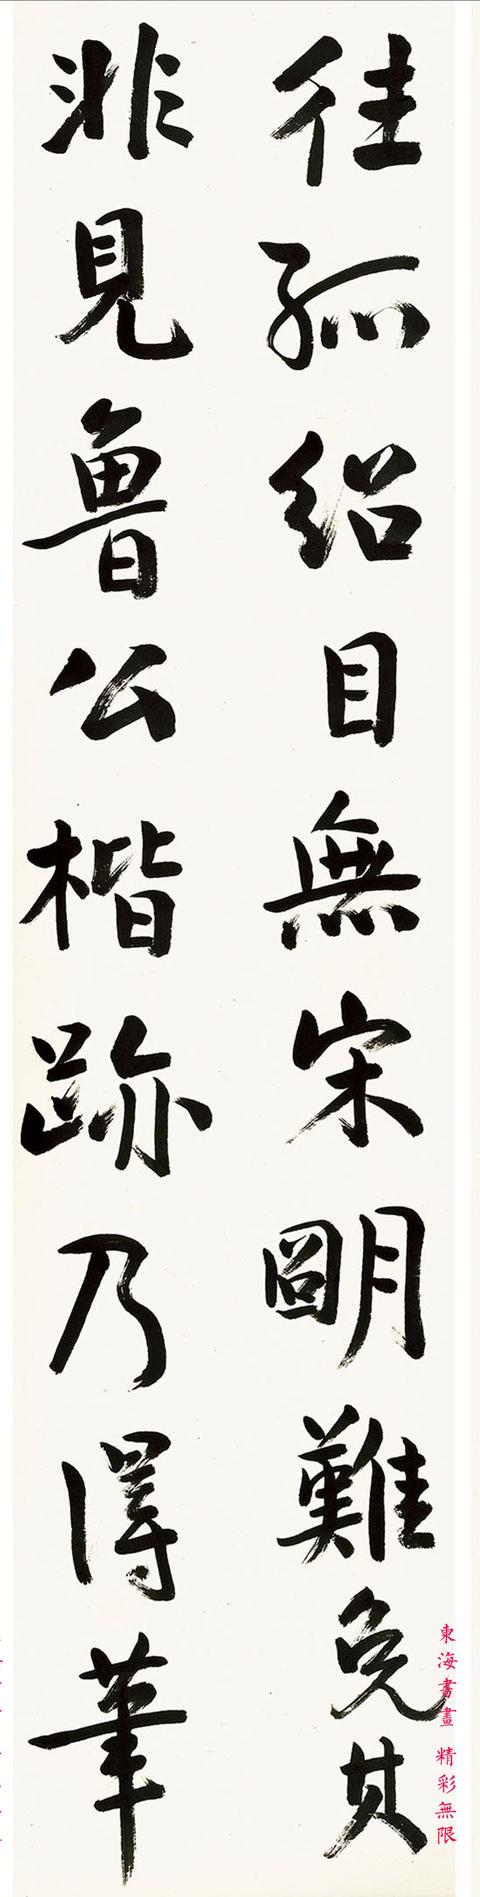 往孤紹目無宋朙難免其
非見魯公楷跡乃得筆
東海書畫 精彩無限